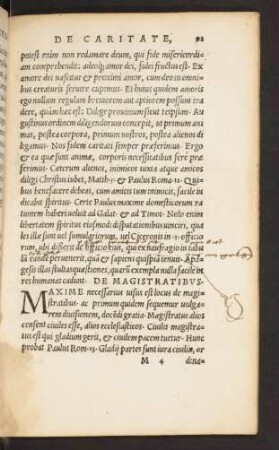 DE CARITATE, 92
potest enim non redamare deum, qui fide misericordi-
am comprehendit: adeoq́; amor dei, fidei fructus est. Ex
amore dei nascitur & proximi amor, cum deo in omni-
bus creaturis seruire cupimus. Et huius quidem amoris
ego nullam regulam breuiorem aut aptiorem possum tra-
dere, quàm hæc est: Dilige proximum sicut teipsum. Au-
gustinus ordinem diligendorum concepit, ut primum ani-
mas, postea corpora, primum nostros, postea alienos di-
ligamus. Nos fidem caritati semper præferimus. Ergo
& ea quæ sunt animæ, corporis necessitatibus sere præ-
ferimus. Caterum alienos, inimicos iuxta atque amicos
diligi Christus iubet, Matth. 5. & Paulus Roma. 12. Qui-
bus benefacere debeas, cum amicis tum inimicis, facile in
dicabit spiritus. Certe Paulus maxime domesticorum ra
tionem haberi uoluit ad Galat. & ad Timot. Nolo enim
libertatem spiritus eiusmodi disputationibus uincire, qua
les illæ sunt uel summulariorum, uel Ciceronis in .3. officio
rum, ubi disserit de officiosis, que ex naufragio in tabu
lâ eandē peruenerit, quâ & sapiens quispiā tenuit. Apa
gesis illas stultas quæstiones, quarū exempla nulla facile in
res humanas cadunt. DE MAGISTRATIBVS.
MAXIME necessarius uisus est locus de magi-
stratibus. ac primum quidem sequemur uulga-
rem diuisionem, docēdi gratia. Magistratus alios
censent ciuiles esse, alios ecclesiasticos. Ciuilis magistra
tus est qui gladium gerit, & ciuilem pacem tuetur. Hunc
probat Paulus Rom. 13. Gladij partes sunt iura ciuilia, or
M 4 dina-